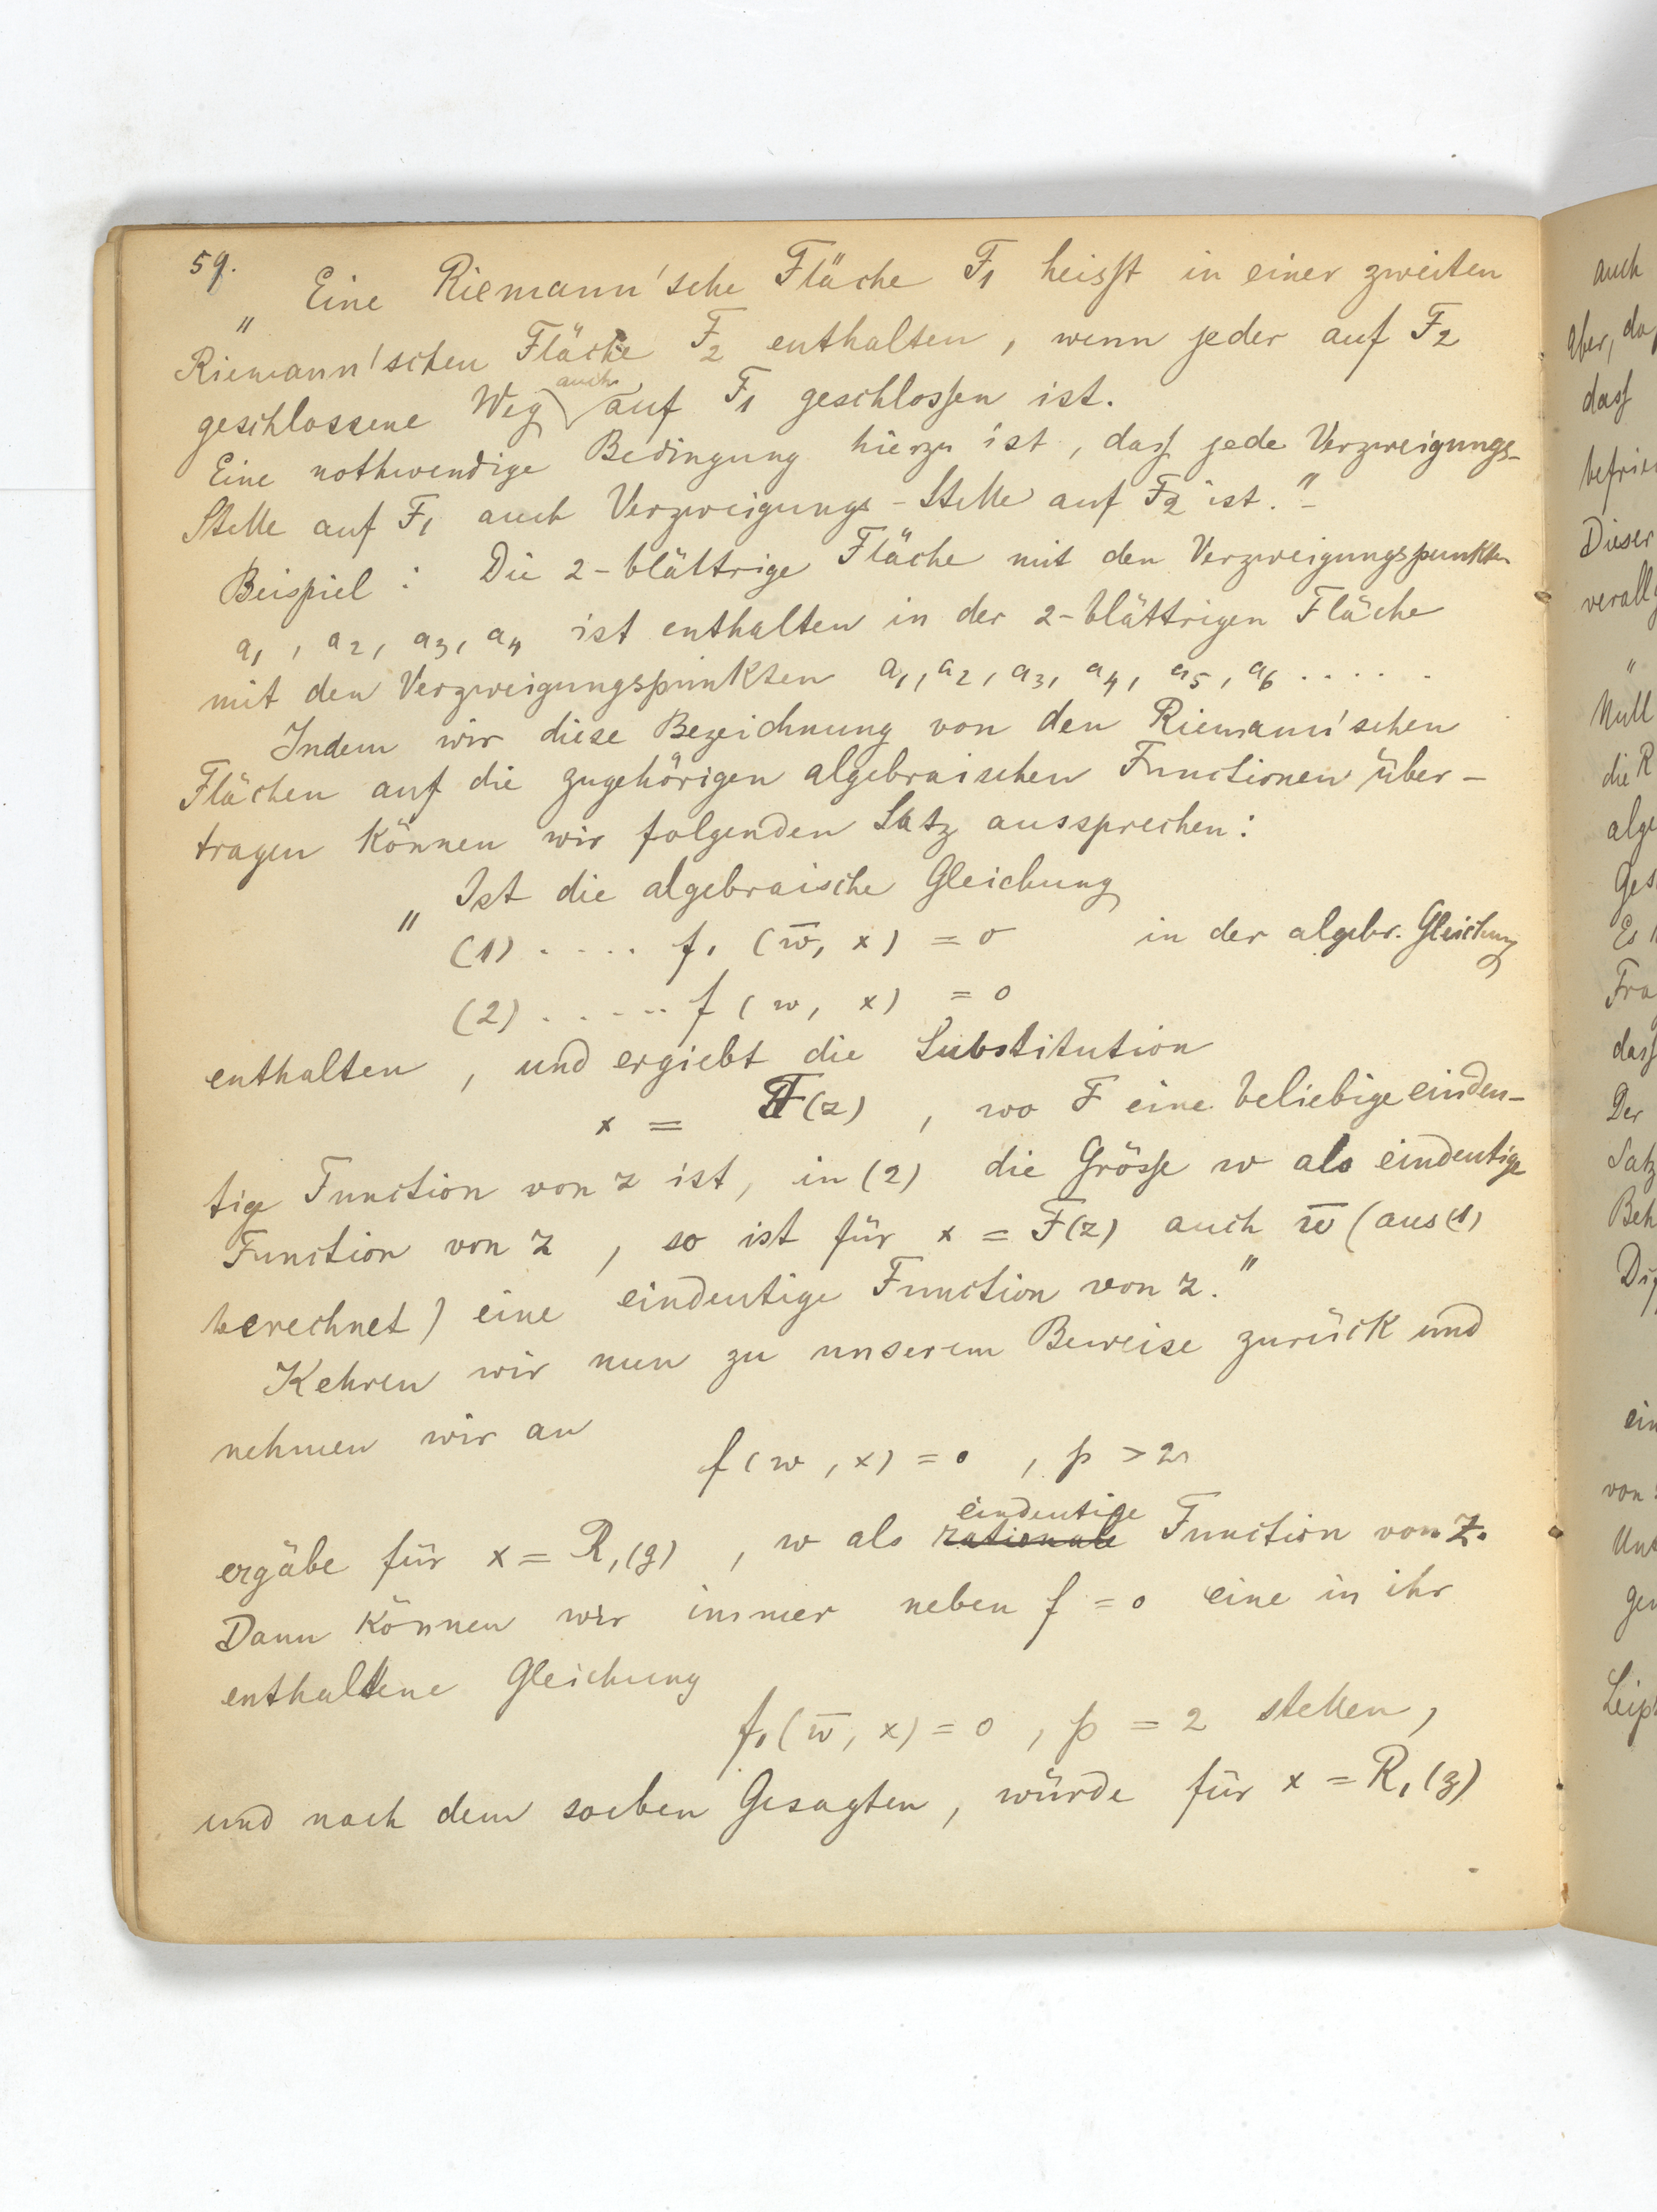 59.
„ Eine Riemann'sche Fläche F₁ heisst in einer zweiten
Riemann'schen Fläche F₂ enthalten, wenn jeder auf F₂
geschlossene Weg auch auf F₁ geschlossen ist.
Eine nothwendige Bedingung hierzu ist, dass jede Verzweigungs-
Stelle auf F₁ auch Verzweigungs-Stelle auf F₂ ist." -
Beispiel : Die 2-blättrige Fläche mit den Verzweigungspunkten
a₁, a₂, a₃, a₄ ist enthalten in der 2-blättrigen Fläche
mit den Verzweigungspunkten a₁, a₂, a₃, a₄, a₅, a₆ . . . . .
Indem wir diese Bezeichnung von den Riemann'schen
Flächen auf die zugehörigen algebraischen Functionen über-
tragen können wir folgenden Satz aussprechen:
„ Ist die algebraische Gleichung
(1) . . . . f₁ (w̅, x) = 0 in der algebr. Gleichung
(2) . . . . . f (w, x) = 0
enthalten, und ergiebt die Substitution
x = F(z) , wo F eine beliebige eindeu-
tige Function von z ist, in (2) die Grösse w als eindeutige
Function von z, so ist für x = F(z) auch w̅ (aus (1)
berechnet) eine eindeutige Function von z."
Kehren wir nun zu unserem Beweise zurück und
nehmen wir an
f (w, x) = 0 , p > 2
ergäbe für x = R₁(z) , w als rationale eindeutige Function von z.
Dann können wir immer neben f = 0 eine in ihr
enthaltene Gleichung
f₁(w̅, x) = 0 , p = 2 stellen,
und nach dem soeben Gesagten, würde für x = R₁(z)
auch
Aber, da
dass
Dieser
Null
die R
Der